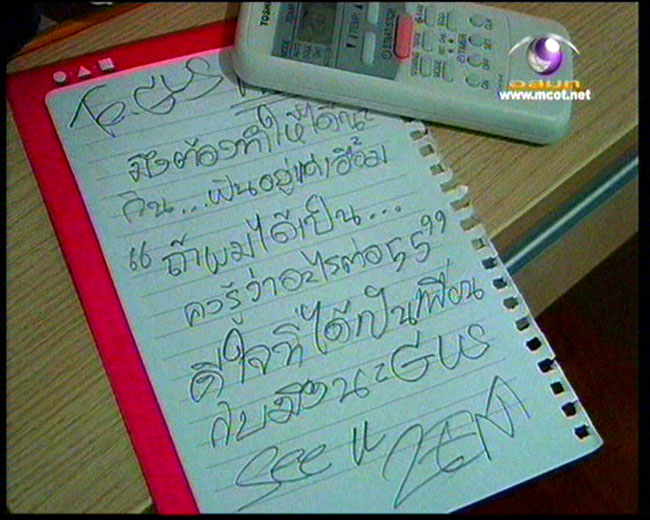 TOSHIBA
อสมท
www.mcot.net
To. GUS
มึงต้องทำให้ได้นะ
กัน...ฝันอยู่แค่เอื้อม
“ ถ้าผมได้เป็น...
ควรรู้ว่าอะไรต่อ 55 ”
ดีใจที่ได้เป็นเพื่อน
กับมึงนะ GUS
See U